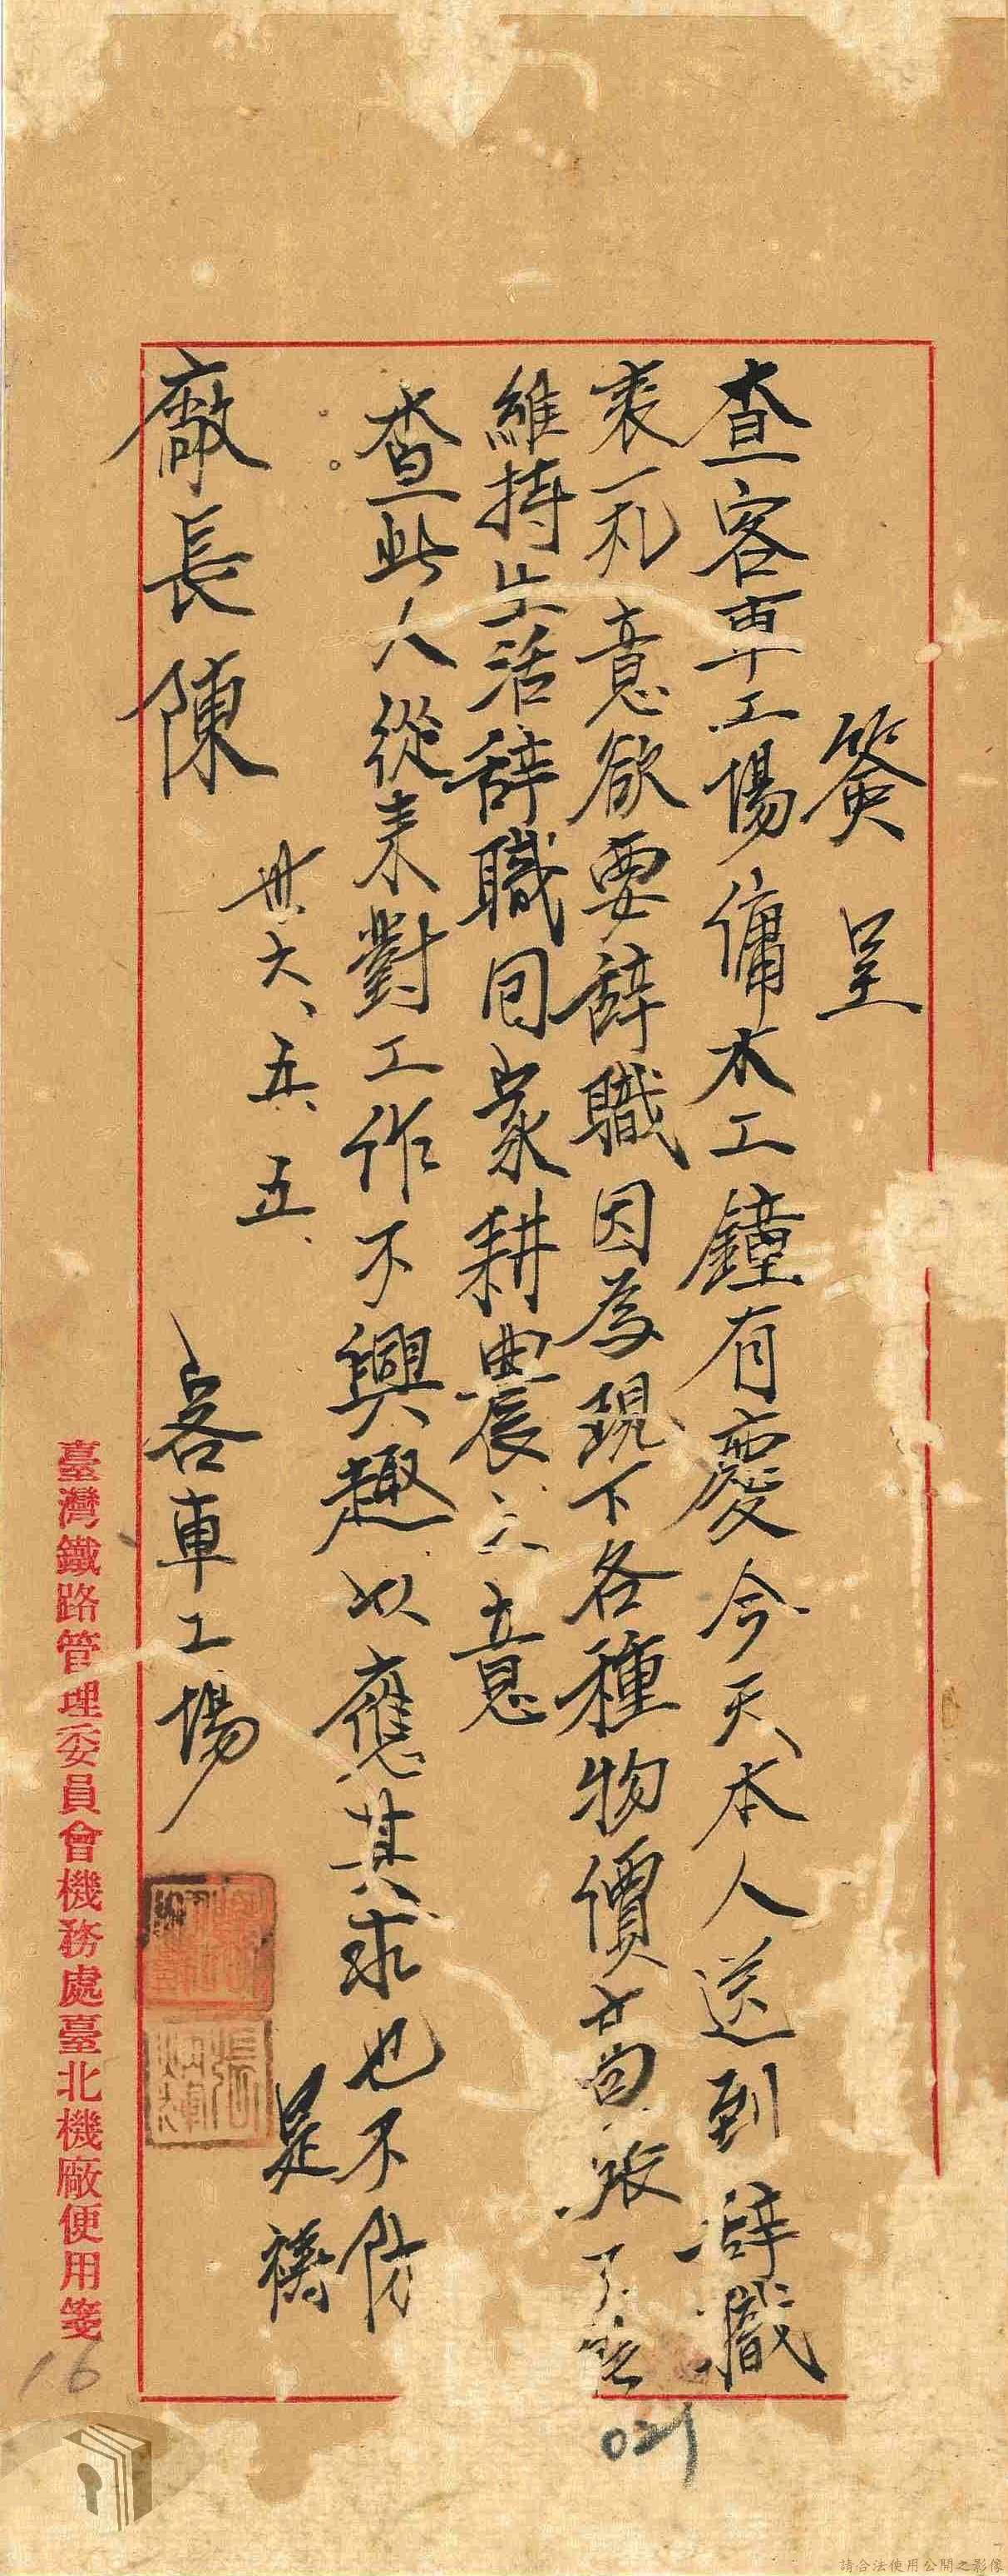 簽呈
查客車工場傭木工鐘有慶今天本人送到辞職
表一札意欲要辞職因為現下各種物價高漲了無
維持生活辞職回家耕農之意
查此人從来對工作不興趣以應其求也不防
是禱
廠長陳
卅六、五、五、
客車工場
張
臺灣鐵路管理委員會機務處臺北機廠便用箋
16
021
請合法使用公開之影像